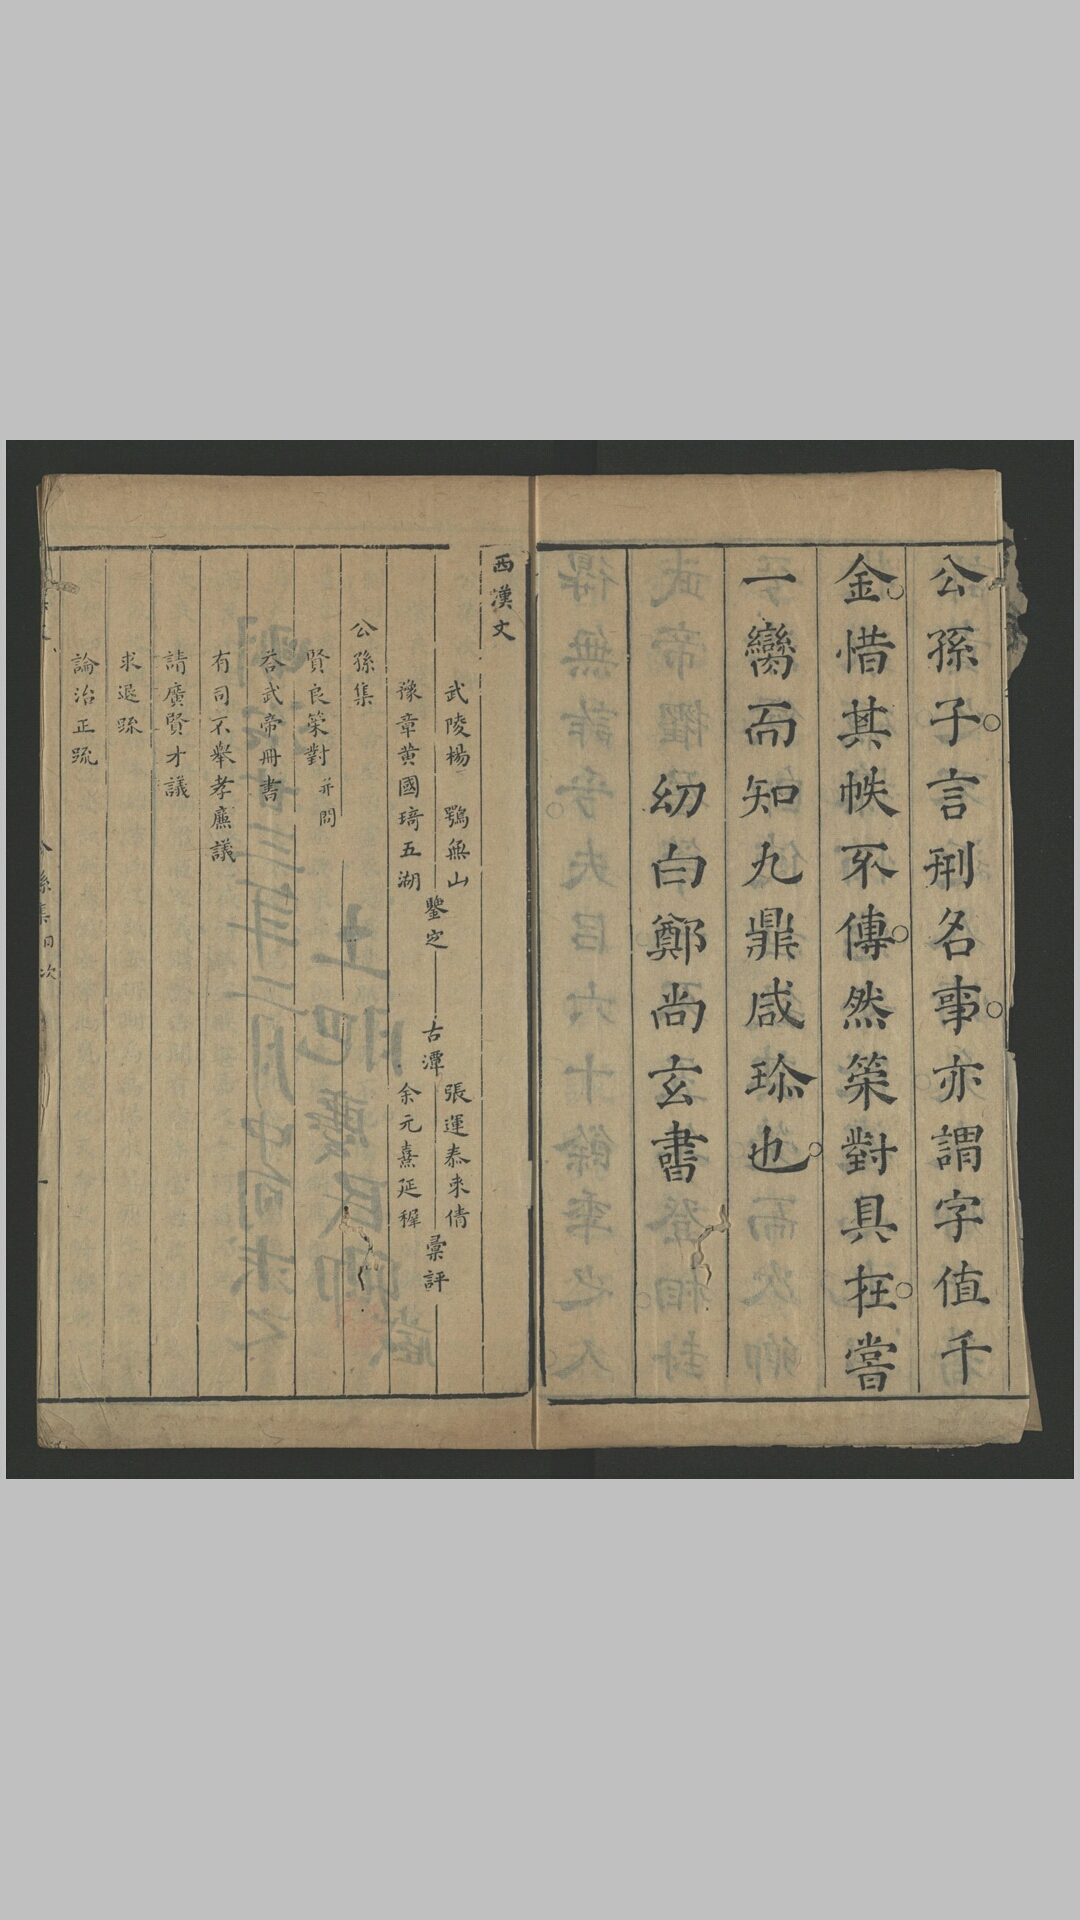 公孫子言刑名事亦謂字值千
金惜其帙不傳然策對具在嘗
一臠而知九鼎咸珎也
幼白鄭尚玄書
西漢文
武陵楊鶚無山
豫章黄國琦五湖
鑒定
古潭
張運泰來倩
余元熹延穉
彙評
公孫集
賢良策對 并問
荅武帝冊書
有司不舉孝廉議
請廣賢才議
求退疏
論治正疏
孫集目次
一